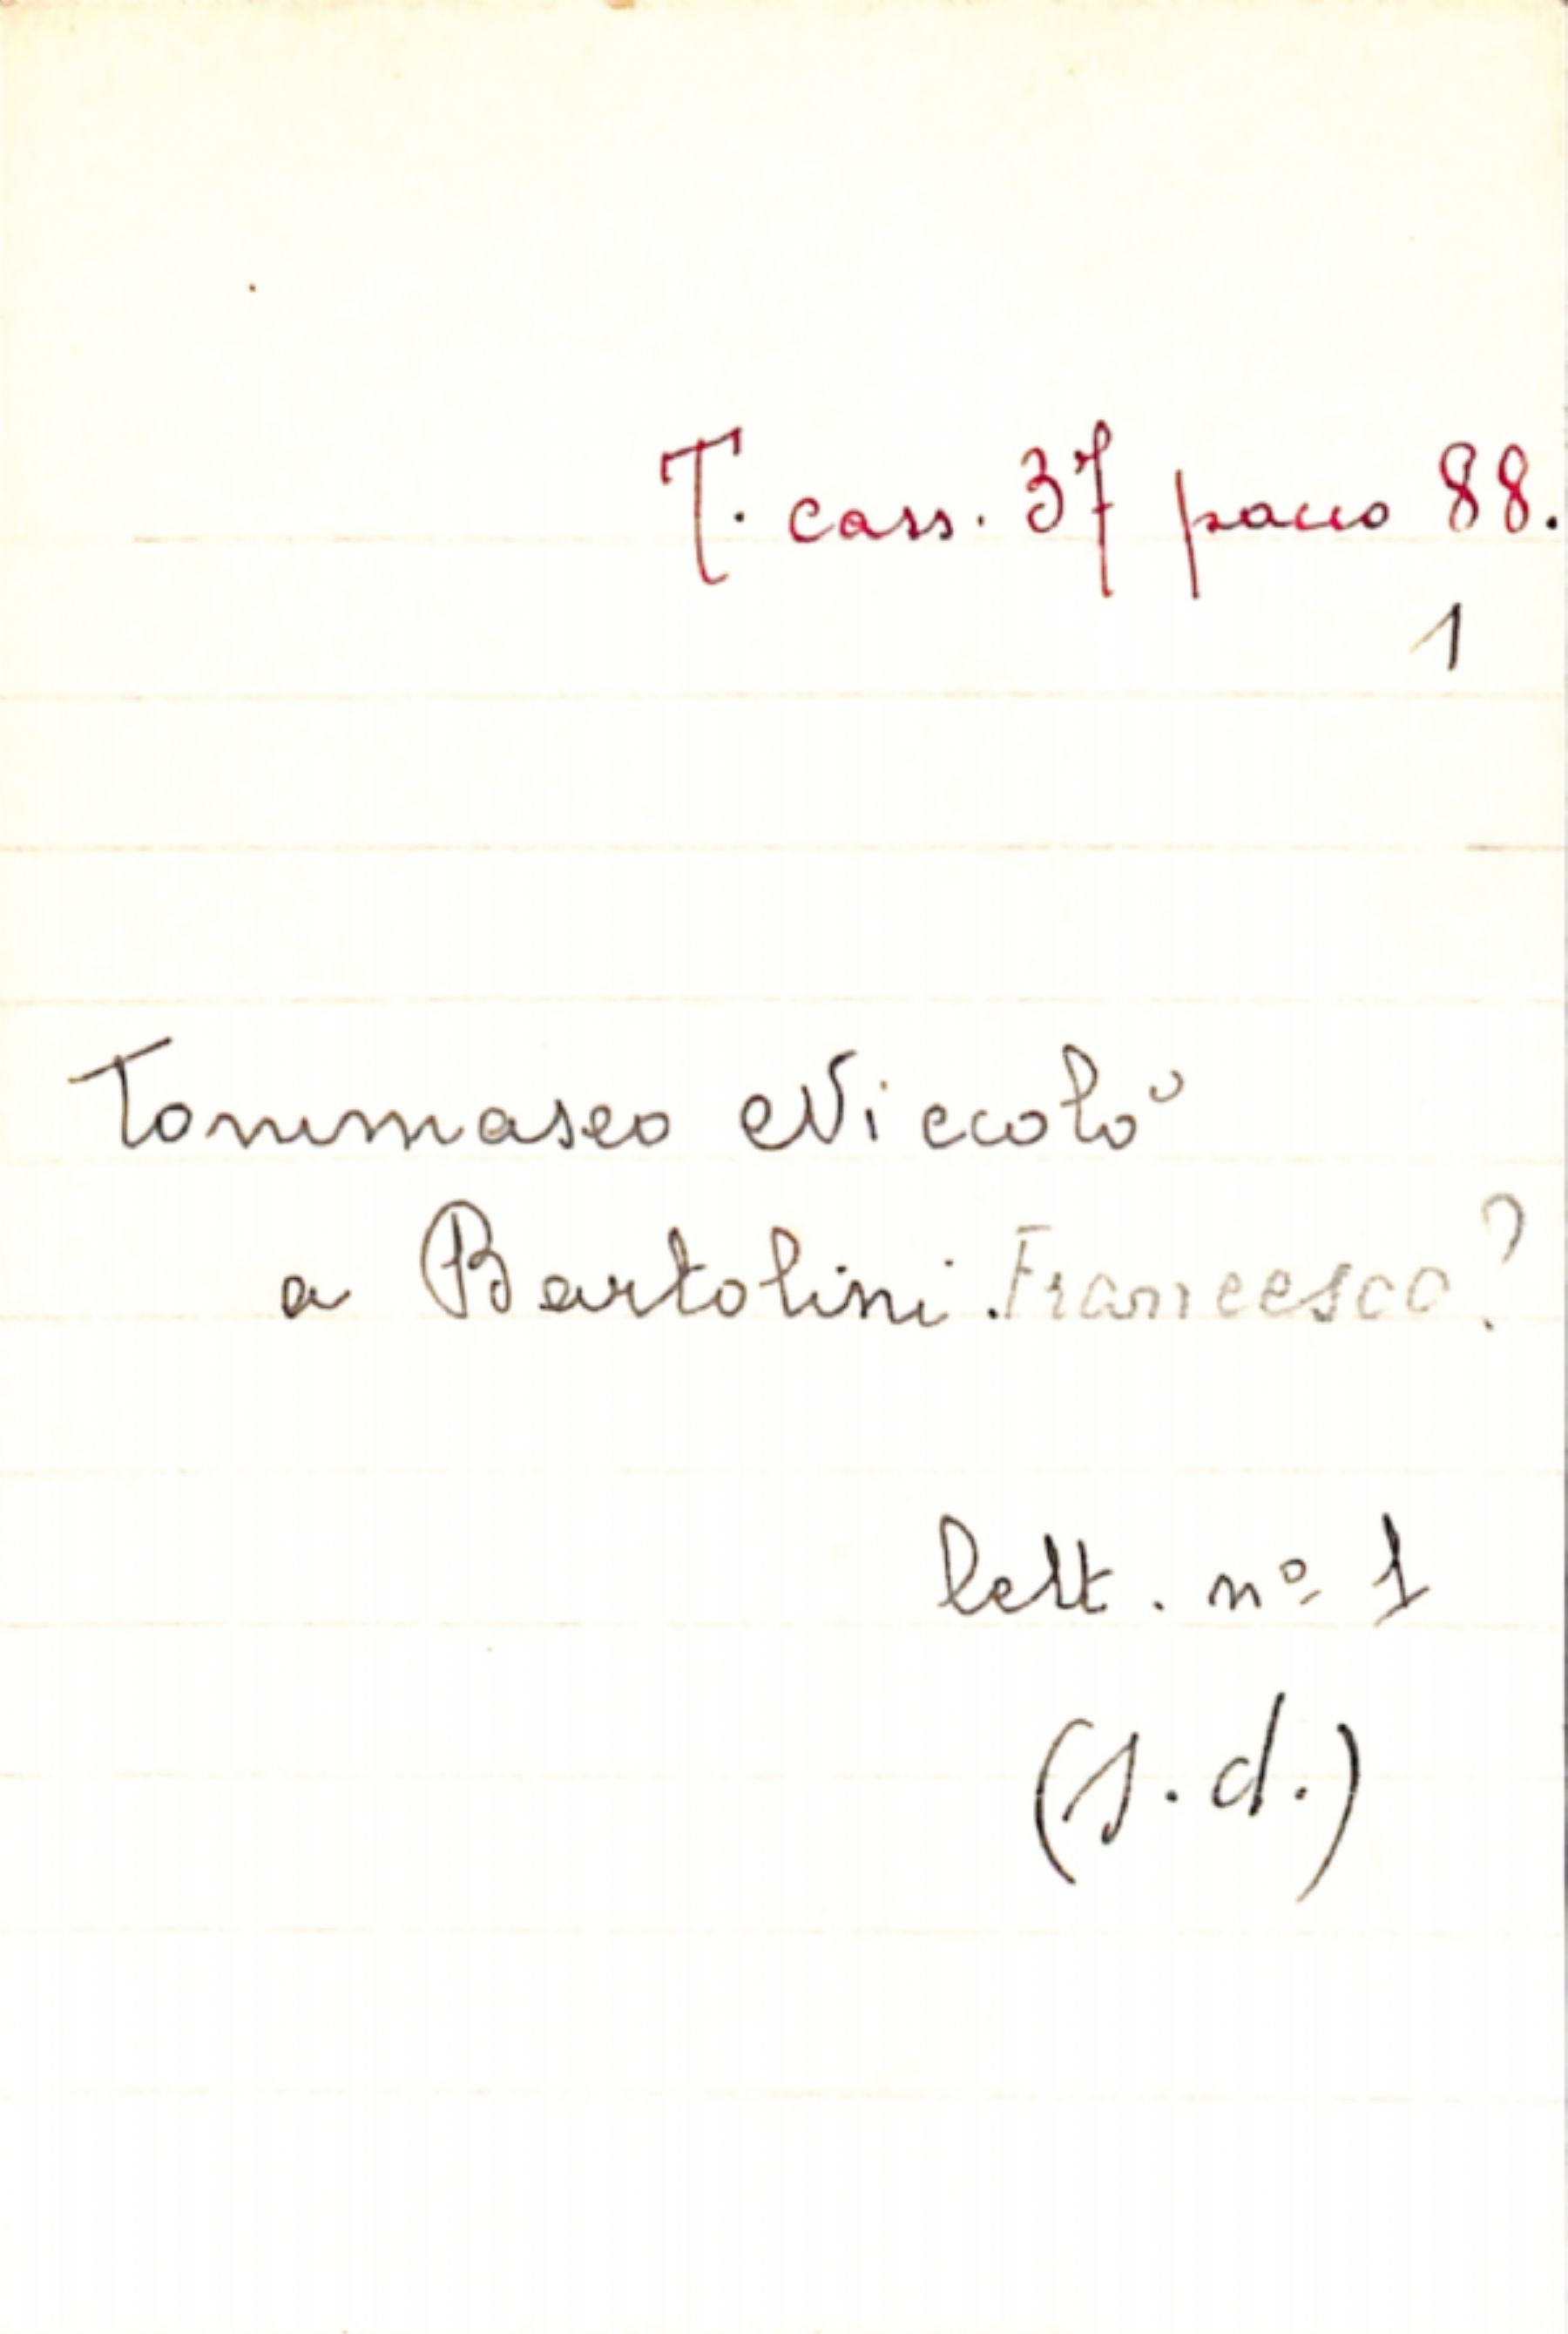 T. cass. 37 pacco 88.
1
Tommaseo Niccolò
a Bartolini. Francesco?
lett. nº 1
(s.d.)